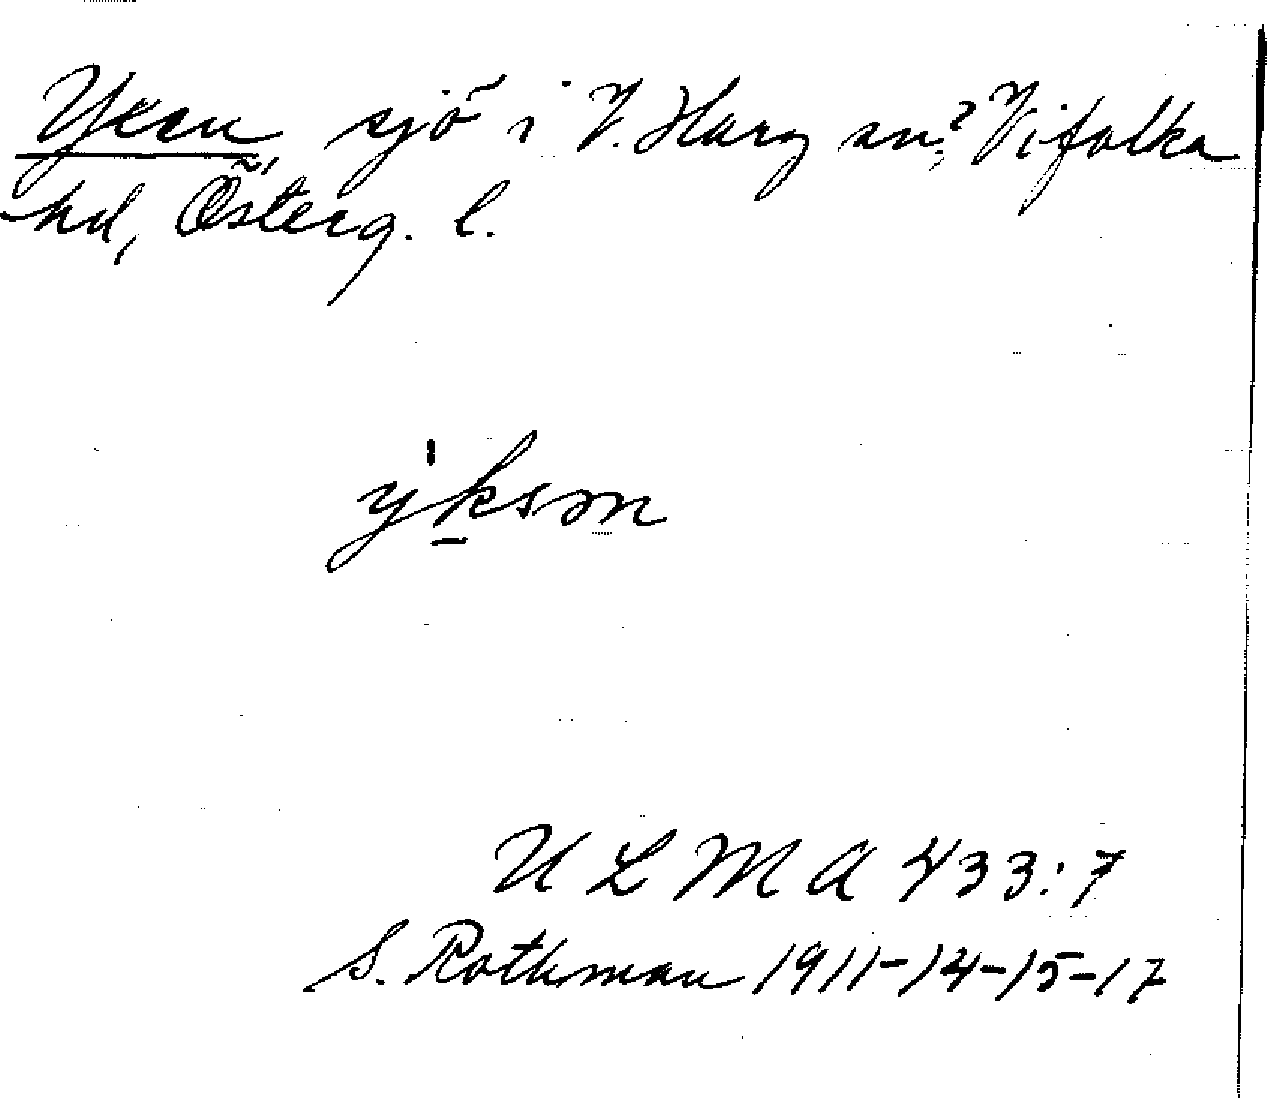 Yxen, sjö i V. Harg sn? Vifolka
hd, Österg. l.
y̍k̲sən
ULMA 433:7
S. Rothman 1911-14-15-17